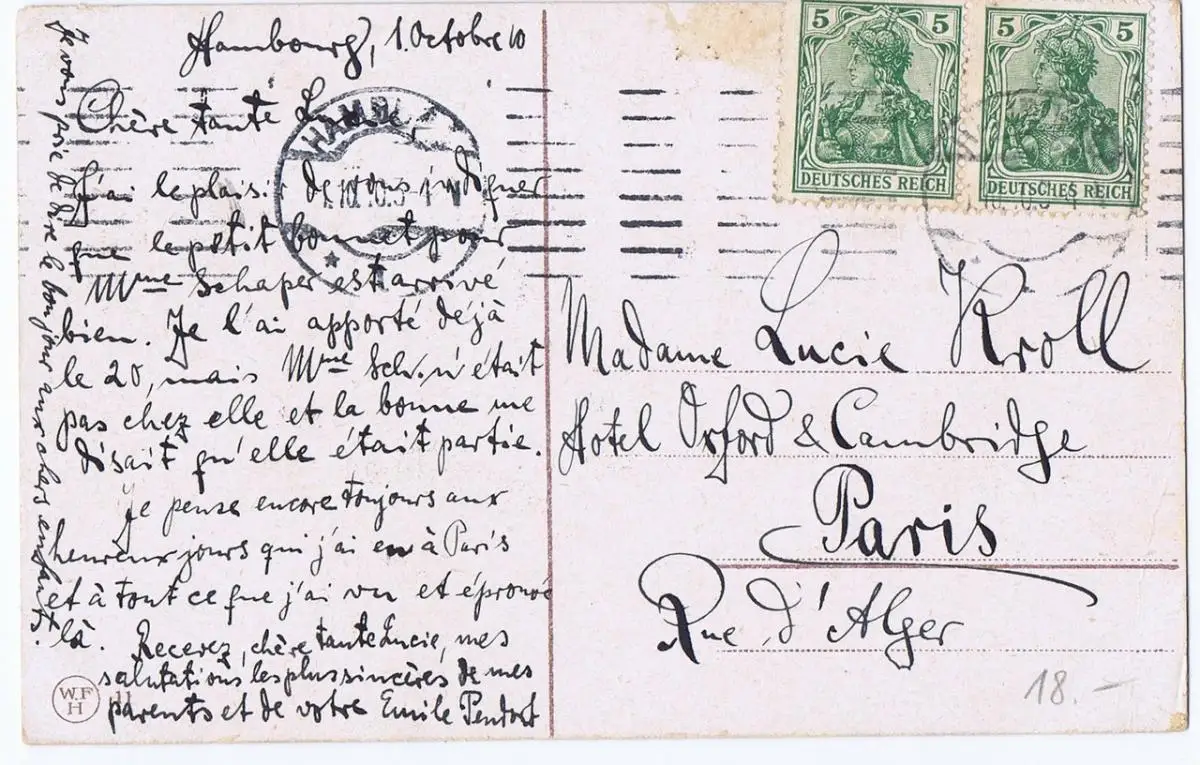 Hambourg, 1. Octobre 10
Chère tante L
J'ai le plais. de vous indiquer
que le petit bonnet pour
Mme Schaper est arrivé
bien. Je l'ai apporté déjà
le 20, mais Mme Sch. n'était
pas chez elle et la bonne me
disait qu'elle était partie.
Je pense encore toujours aux
heureux jours qui j'ai eu à Paris
et à tout ce que j'ai vu et éprouvé
là. Recevez, chère tante Lucie, mes
salutations les plus sincères de mes
parents et de votre Emile Pendorf
Je vous prie de dire le bonjour aux chers enfants.
W.F
H
11
HAMBU
5 5
DEUTSCHES REICH
5 5
DEUTSCHES REICH
Madame Lucie Kroll
Hotel Oxford & Cambridge
Paris
Rue d'Alger
18.—